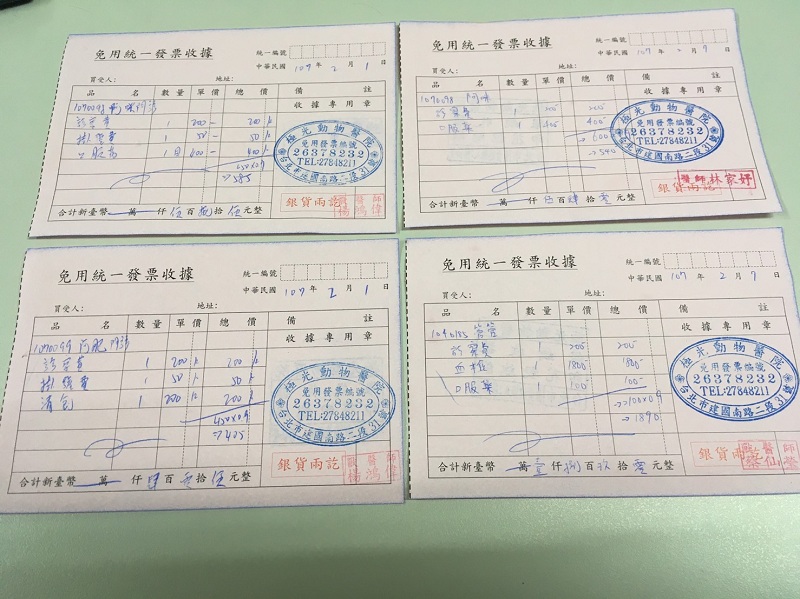 免用統一發票收據
統一編號
中華民國 107 年 2 月 1 日
買受人： 地址：
品 名 數量 單價 總價 備 註
1070098
診察費 1 200 200
收據專用章
掛號費 1 50 50
口服藥 1 400 400
650x0.9
→585
極光動物醫院
免用發票編號
26378232
TEL:27848211
台北市建國南路二段31號
合計新臺幣 萬 仟 伍 百 捌 拾 伍 元整
銀貨兩訖
獸醫師 楊鴻偉
免用統一發票收據
統一編號
中華民國 107 年 2 月 9 日
買受人： 地址：
品 名 數量 單價 總價 備 註
1070098 阿咪
診察費 1 200 200
收據專用章
口服藥 1 400 400
→600
→540
極光動物醫院
免用發票編號
26378232
TEL:27848211
台北市建國南路二段31號
合計新臺幣 萬 仟 伍 百 肆 拾 零 元整
銀貨兩訖
醫師 林家妤
免用統一發票收據
統一編號
中華民國 107 年 2 月 1 日
買受人： 地址：
品 名 數量 單價 總價 備 註
1070099 阿肥
診察費 1 200 200
收據專用章
掛號費 1 50 50
1 200 200
450x0.9
→405
極光動物醫院
免用發票編號
26378232
TEL:27848211
台北市建國南路二段31號
合計新臺幣 萬 仟 肆 百 零 拾 伍 元整
銀貨兩訖
獸醫師 楊鴻偉
免用統一發票收據
統一編號
中華民國 107 年 2 月 9 日
買受人： 地址：
品 名 數量 單價 總價 備 註
1040185 管管
診察費 1 200 200
收據專用章
血檢 1 1800 1800
口服藥 1 100 100
→2100x0.9
→1890
極光動物醫院
免用發票編號
26378232
TEL:27848211
台北市建國南路二段31號
合計新臺幣 萬 壹 仟 捌 百 玖 拾 零 元整
銀貨兩訖